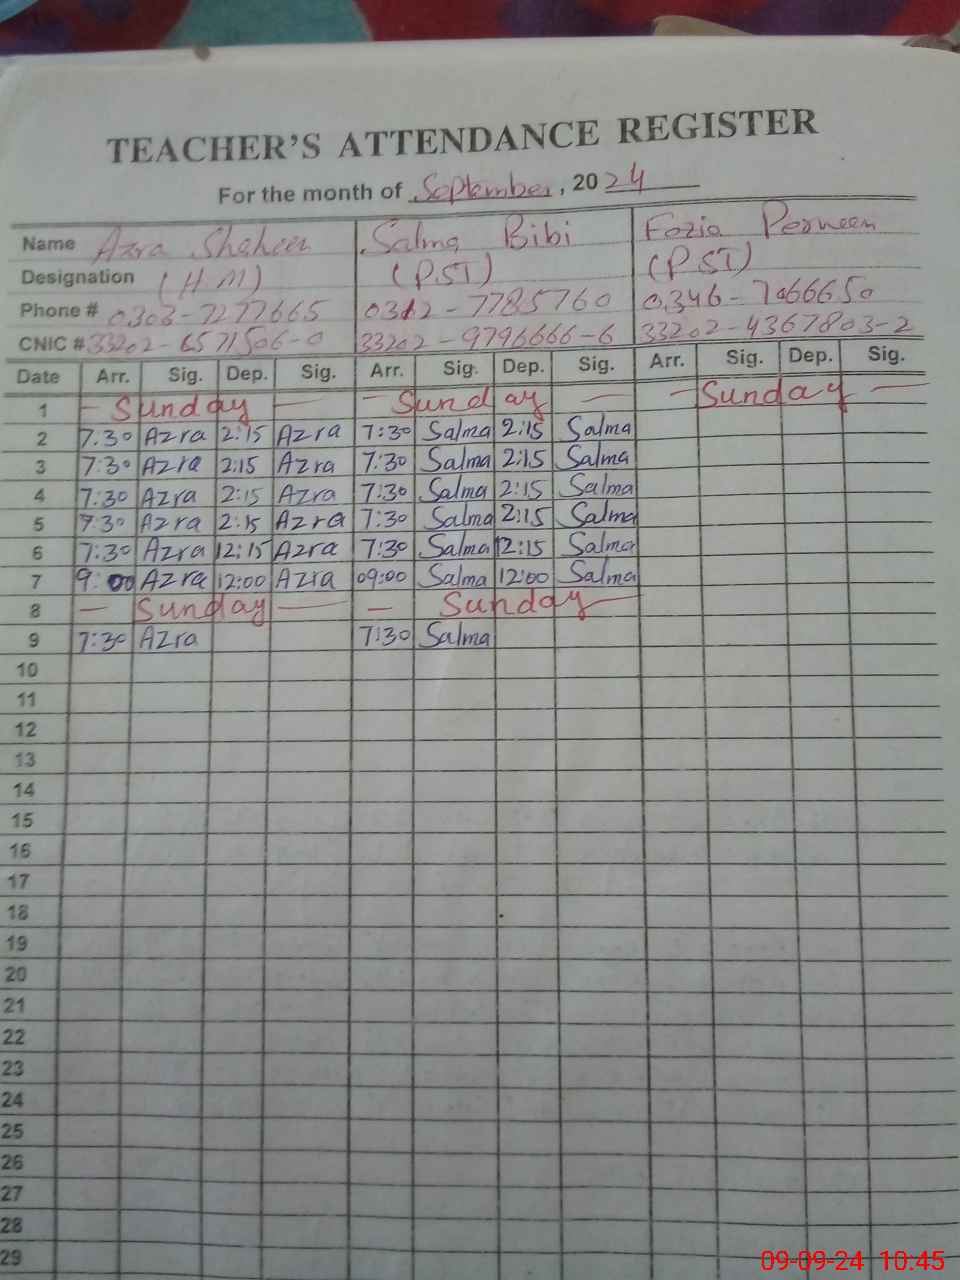 TEACHER'S ATTENDANCE REGISTER
For the month of September, 2024
Name Azra Shaheen Salma Bibi Fozia Perneen
Designation (H.M) (P.ST) (P.ST)
Phone # 0303-7277665 0312-7785760 0346-7066650
CNIC # 33202-6571506-0 33202-9796666-6 33202-4367803-2
Date Arr. Sig. Dep. Sig. Arr. Sig. Dep. Sig. Arr. Sig. Dep. Sig.
1 - Sunday - - Sunday - - Sunday -
2 7:30 Azra 2:15 Azra 7:30 Salma 2:15 Salma
3 7:30 Azra 2:15 Azra 7:30 Salma 2:15 Salma
4 7:30 Azra 2:15 Azra 7:30 Salma 2:15 Salma
5 7:30 Azra 2:15 Azra 7:30 Salma 2:15 Salma
6 7:30 Azra 12:15 Azra 7:30 Salma 12:15 Salma
7 9:00 Azra 12:00 Azra 09:00 Salma 12:00 Salma
8 - Sunday - - Sunday -
9 7:30 Azra 7:30 Salma
10
11
12
13
14
15
16
17
18
19
20
21
22
23
24
25
26
27
28
29
09-09-24 10:45